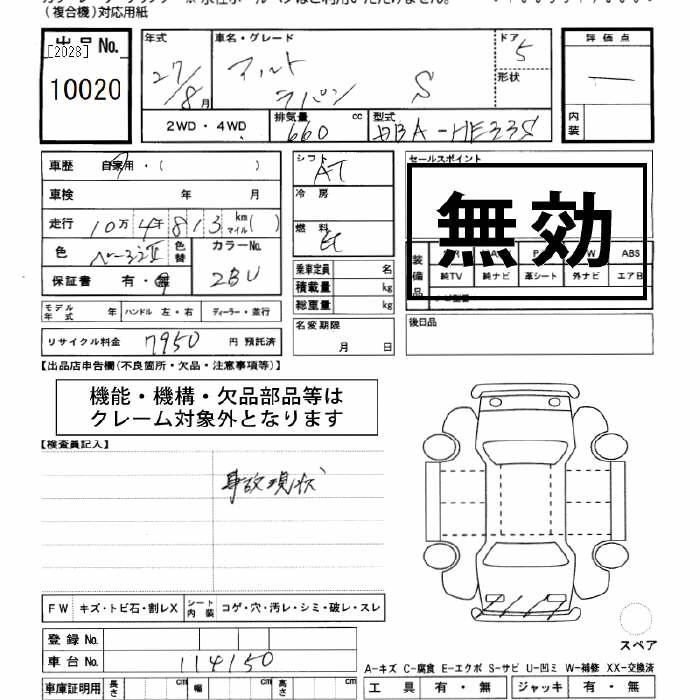 (複合機)対応用紙
出品No.
[2028]
10020
年式 車名・グレード ドア 評価点
27/8月 アルト ラパン S 5 形状 ―
2WD・4WD 排気量 660 cc 型式 DBA-HE33S 内装
車歴 自家用・( )
車検 年 月
走行 10万4千813 km マイル( )
色 ベージュⅡ 色替 カラーNo. 2BU
保証書 有・無
モデル年式 年 ハンドル 左・右 ディーラー・並行
リサイクル料金 7950 円 預託済
シフト AT
冷房
燃料
乗車定員 名
積載量 kg
総重量 kg
名変期限
月 日
セールスポイント
無効
装備品 ABS
純TV 純ナビ 革シート 外ナビ エアB
後日品
【出品店申告欄(不良箇所・欠品・注意事項等)】
機能・機構・欠品部品等は
クレーム対象外となります
【検査員記入】
事故現状
FW キズ・トビ石・割レX シート内装 コゲ・穴・汚レ・シミ・破レ・スレ
登録No.
車台No. 114150
車庫証明用 長さ cm 幅 cm 高さ cm
スペア
A-キズ C-腐食 E-エクボ S-サビ U-凹ミ W-補修 XX-交換済
工具 有・無 ジャッキ 有・無